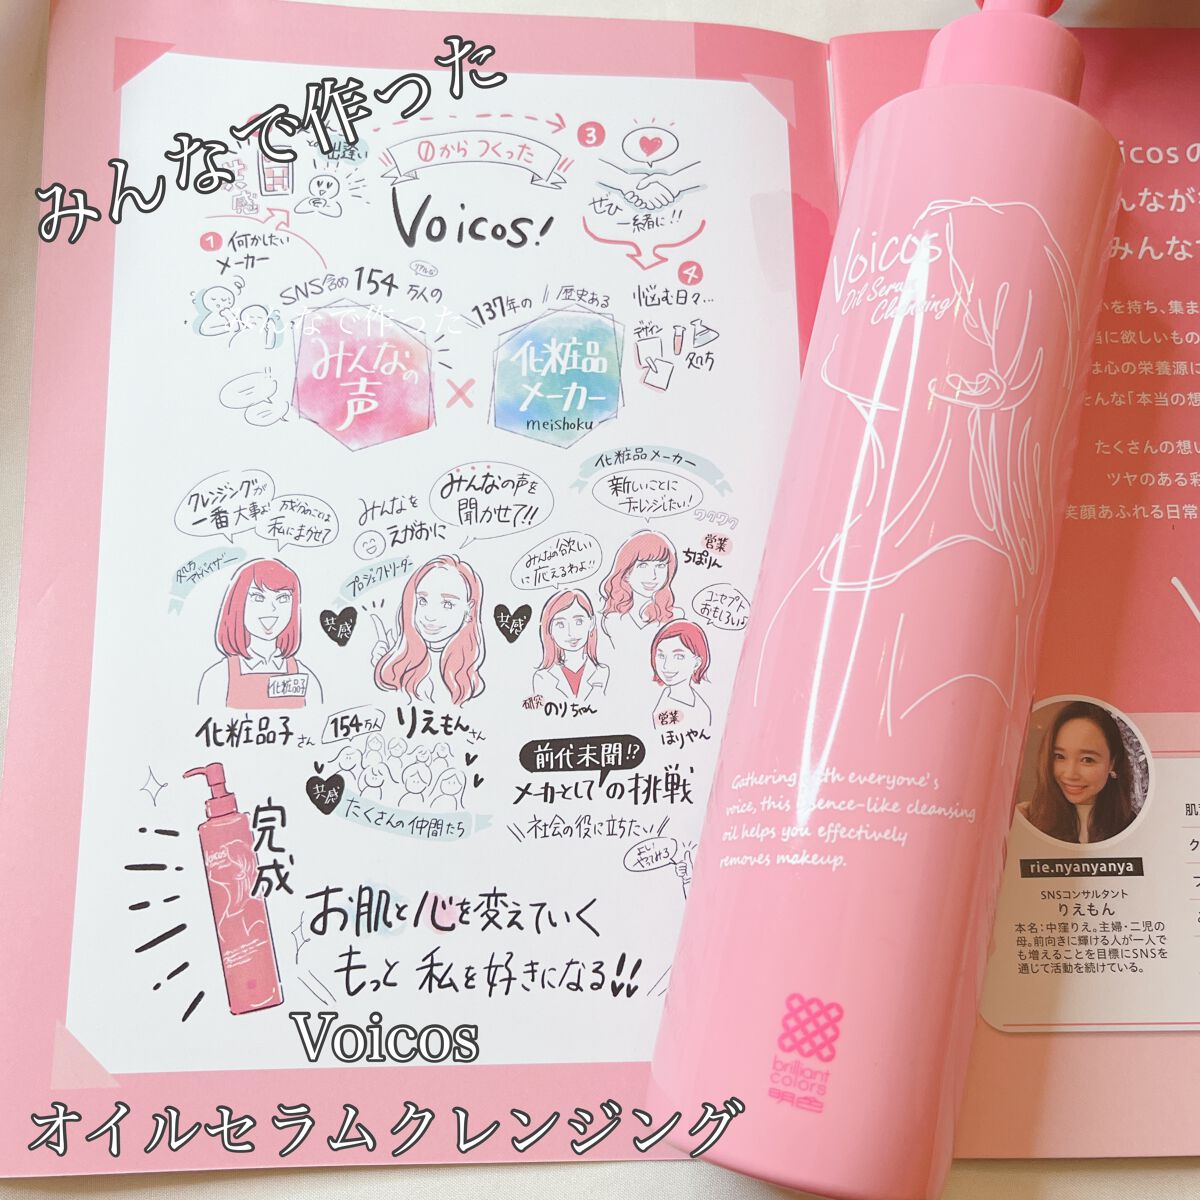 みんなで作った
出逢い
共感
0からつくった
Voicos!
3
ぜひ
一緒に!!
1
何かしたい
メーカー
SNS含め154万人の
リアルな
みんなで作った
みんなの
声
×
137年の
歴史ある
化粧品
メーカー
meishoku
4
悩む日々…
デザイン
処方
クレンジングが
一番大事よ!
成分のことは
私にまかせて
みんなを
えがおに
みんなの声を
聞かせて!!
化粧品メーカー
新しいことに
チャレンジしたい!
ワクワク
処方
アドバイザー
プロジェクトリーダー
みんなの欲しい
に応えるわよ!!
営業
ちぽりん
コンセプト
おもしろい♪
共感
共感
化粧品子
化粧品子さん
154万人
りえもんさん
研究
のりちゃん
営業
ほりやん
共感
たくさんの仲間たち
前代未聞!?
メーカーとしての挑戦
社会の役に立ちたい
よし
やってみろ
完成
Voicos
お肌と心を変えていく
もっと私を好きになる!!
Voicos
オイルセラムクレンジング
Voicos
Oil Serum
Cleansing
Gathering with everyone's
voice, this essence-like cleansing
oil helps you effectively
removes makeup.
brilliant
colors
明色
icosの
んなが
みんな
を持ち、集ま
当に欲しいもの
は心の栄養源に
そんな「本当の想
たくさんの想い
ツヤのある彩
笑顔あふれる日常
rie.nyanyanya
SNSコンサルタント
りえもん
本名:中窪りえ。主婦・二児の
母。前向きに輝ける人が一人で
も増えることを目標にSNSを
通じて活動を続けている。
肌
ク